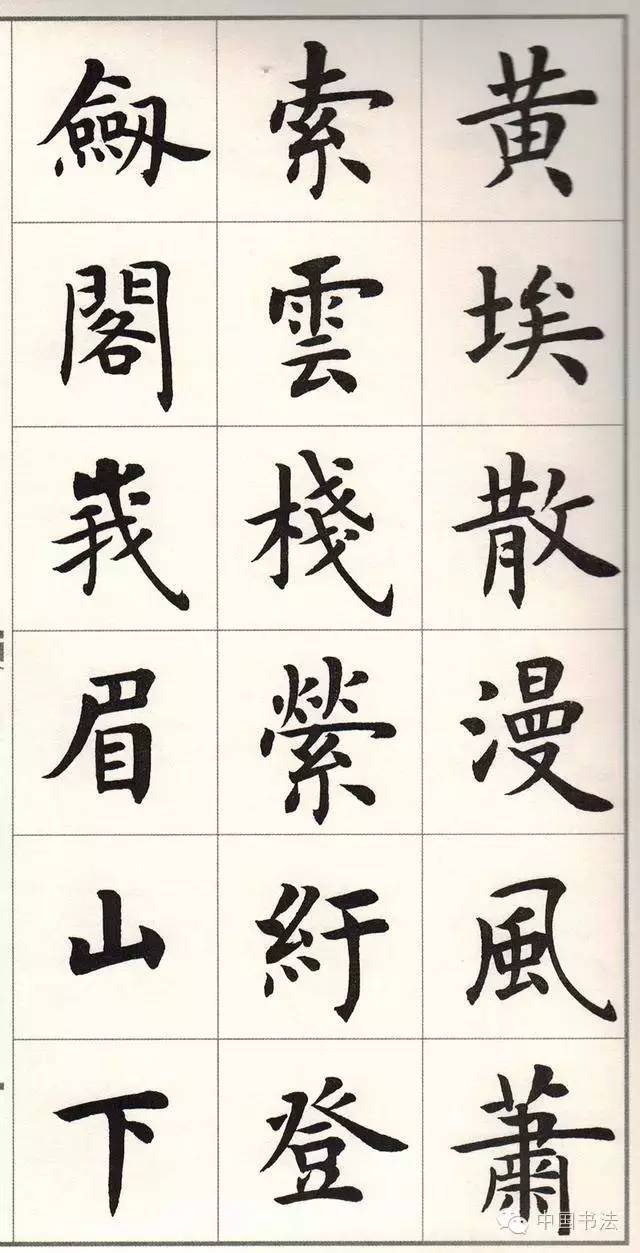 黄埃散漫風蕭
索雲棧縈紆登
劔閣峩眉山下
中国书法